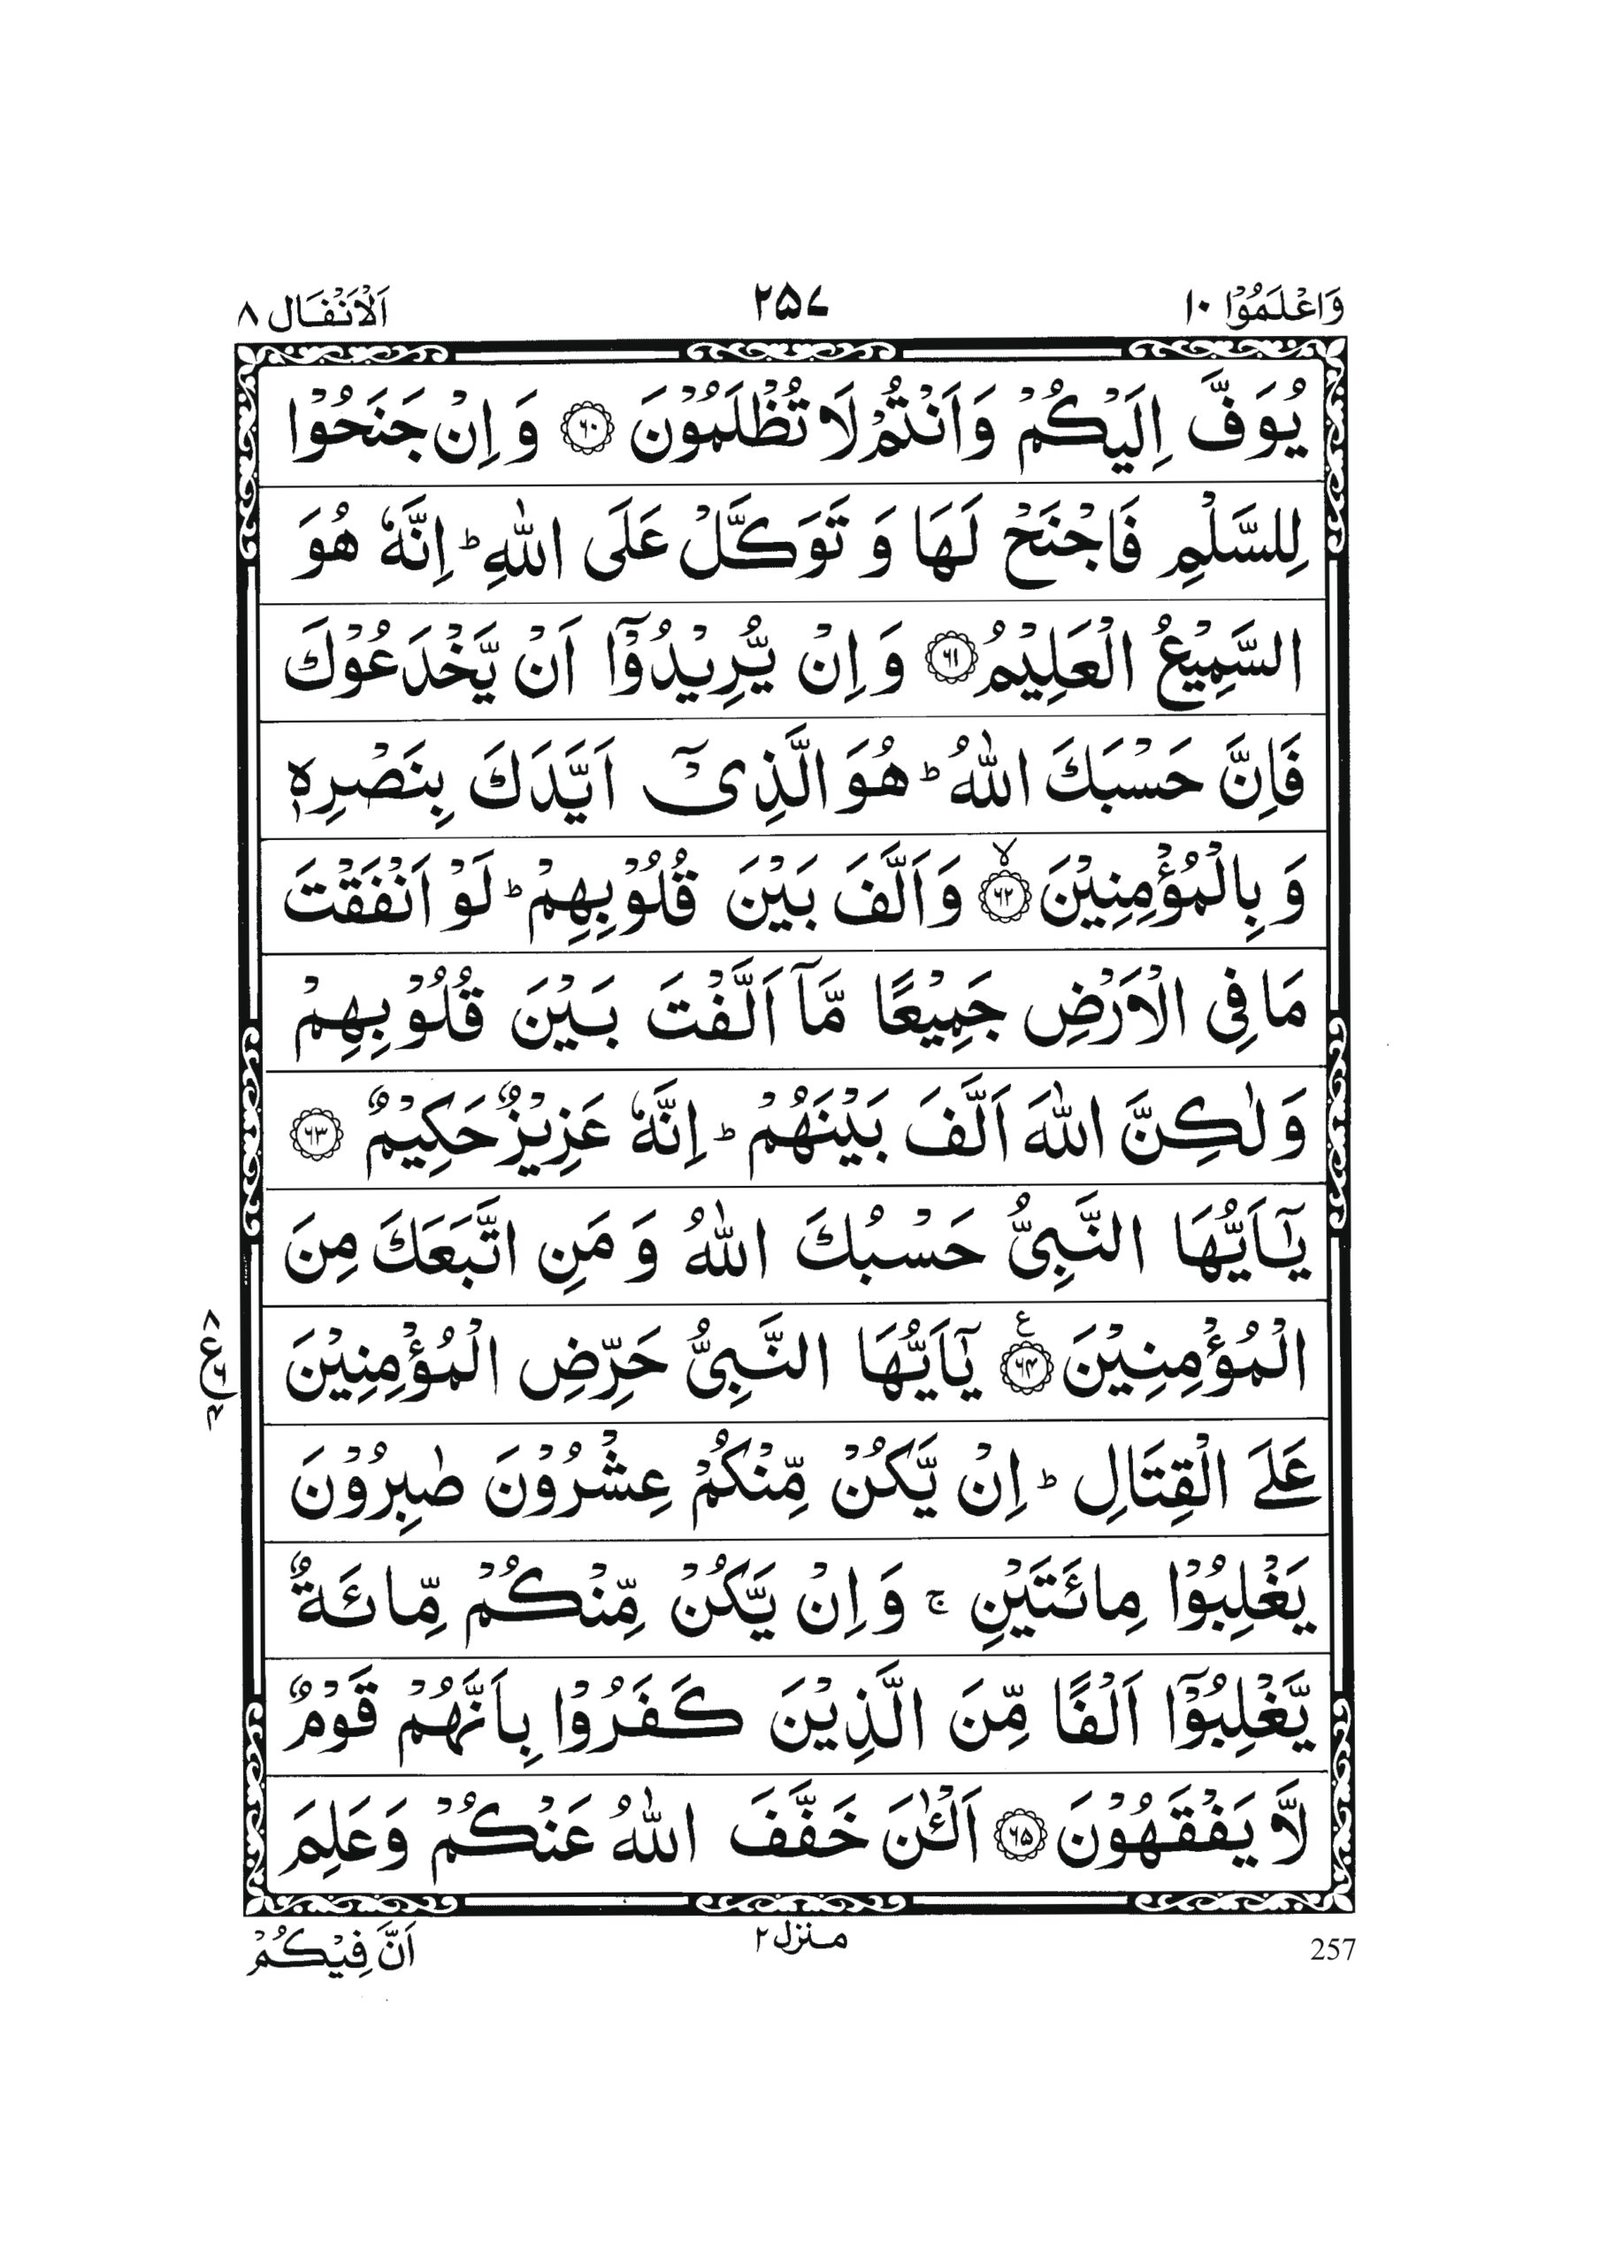 وَاعْلَمُوْۤا ١٠
٢٥٧
اَلْاَنْفَال ٨
يُوَفَّ اِلَيْكُمْ وَاَنْتُمْ لَا تُظْلَمُوْنَ ۝٦٠ وَ اِنْ جَنَحُوْا
لِلسَّلْمِ فَاجْنَحْ لَهَا وَ تَوَكَّلْ عَلَى اللّٰهِ ؕ اِنَّهٗ هُوَ
السَّمِيْعُ الْعَلِيْمُ ۝٦١ وَ اِنْ يُّرِيْدُوْۤا اَنْ يَّخْدَعُوْكَ
فَاِنَّ حَسْبَكَ اللّٰهُ ؕ هُوَ الَّذِیْۤ اَيَّدَكَ بِنَصْرِهٖ
وَ بِالْمُؤْمِنِيْنَ ۝٦٢ ۙ وَاَلَّفَ بَيْنَ قُلُوْبِهِمْ ؕ لَوْ اَنْفَقْتَ
مَا فِی الْاَرْضِ جَمِيْعًا مَّاۤ اَلَّفْتَ بَيْنَ قُلُوْبِهِمْ
وَلٰكِنَّ اللّٰهَ اَلَّفَ بَيْنَهُمْ ؕ اِنَّهٗ عَزِيْزٌ حَكِيْمٌ ۝٦٣
يٰۤاَيُّهَا النَّبِیُّ حَسْبُكَ اللّٰهُ وَ مَنِ اتَّبَعَكَ مِنَ
الْمُؤْمِنِيْنَ ۝٦٤ ع يٰۤاَيُّهَا النَّبِیُّ حَرِّضِ الْمُؤْمِنِيْنَ
عَلَی الْقِتَالِ ؕ اِنْ يَّكُنْ مِّنْكُمْ عِشْرُوْنَ صٰبِرُوْنَ
يَغْلِبُوْا مِائَتَيْنِ ۚ وَ اِنْ يَّكُنْ مِّنْكُمْ مِّائَةٌ
يَّغْلِبُوْۤا اَلْفًا مِّنَ الَّذِيْنَ كَفَرُوْا بِاَنَّهُمْ قَوْمٌ
لَّا يَفْقَهُوْنَ ۝٦٥ اَلْـٰٔنَ خَفَّفَ اللّٰهُ عَنْكُمْ وَعَلِمَ
٨
ع
٦
٤
257
منزل ٢
اَنَّ فِيْكُمْ